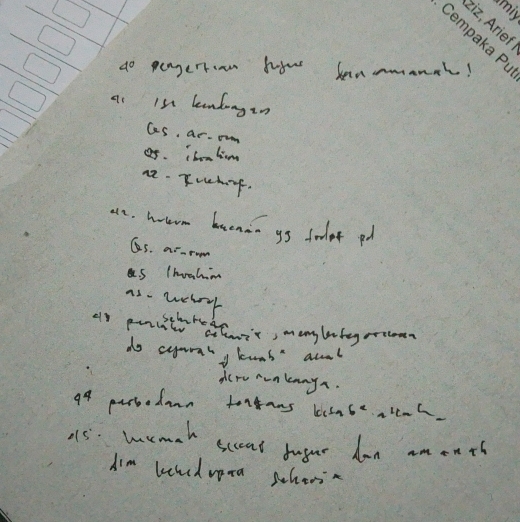 Aziz, Arief
Cempaka Puti
40 pengertian jujur dan amanah!
41 isi kandungan
Qs. ar-rum
Qs. ibrahim
az-Zukhruf.
42. hukum bacaan yg terdpt pd
Qs. ar-rum
Qs Ibrahim
az-zukhruf
43 sebutkan
perilaku sehari²,
sejarah kitab² allah
diturunkannya.
44 perbedaan tentang kitab² allah
45. hikmah sikap jujur dan amanah
dlm kehidupan sehari²